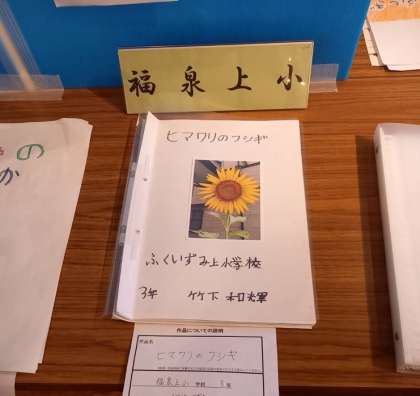 福泉上小
ヒマワリのフシギ
ふくいずみ上小学校
3年 竹下 和輝
作品についての説明
作品名
ヒマワリのフシギ
福泉上小 学校 3年
の
か